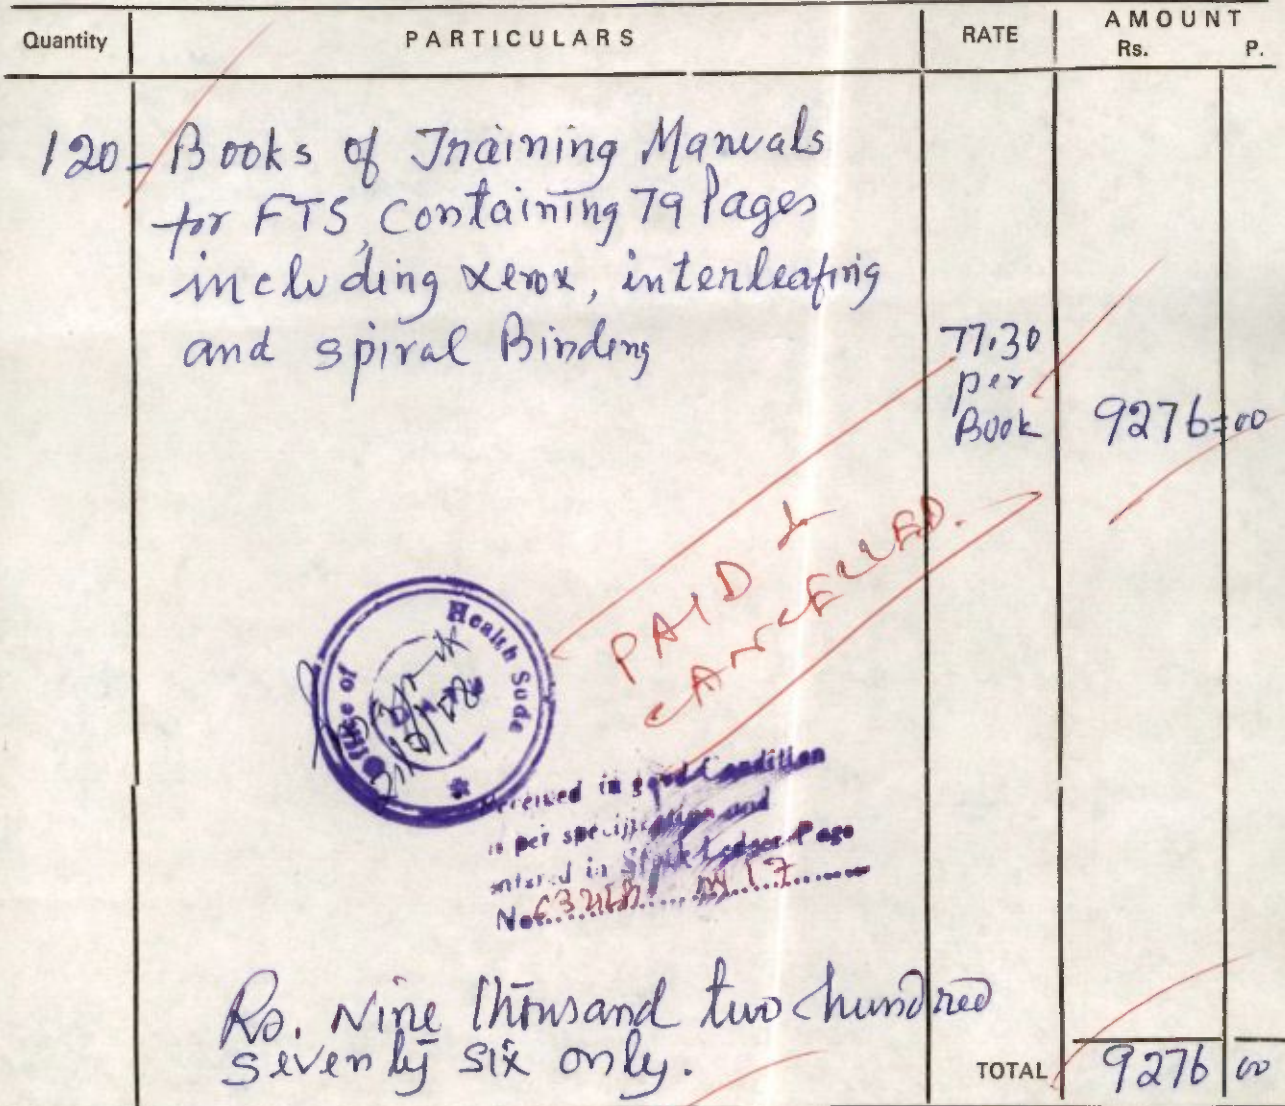 Quantity PARTICULARS RATE AMOUNT
Rs. P.
120 - Books of Training Manuals
for FTS, Containing 79 Pages
including xerox, interleafing
and spiral Binding
77.30
per
Book 9276=00
PAID &
CANCELLED.
Office of Health
Received in good Condition
as per specification and
entered in Stock Ledger Page
No.
Rs. Nine thousand two hundred
seventy six only.
TOTAL 9276 00